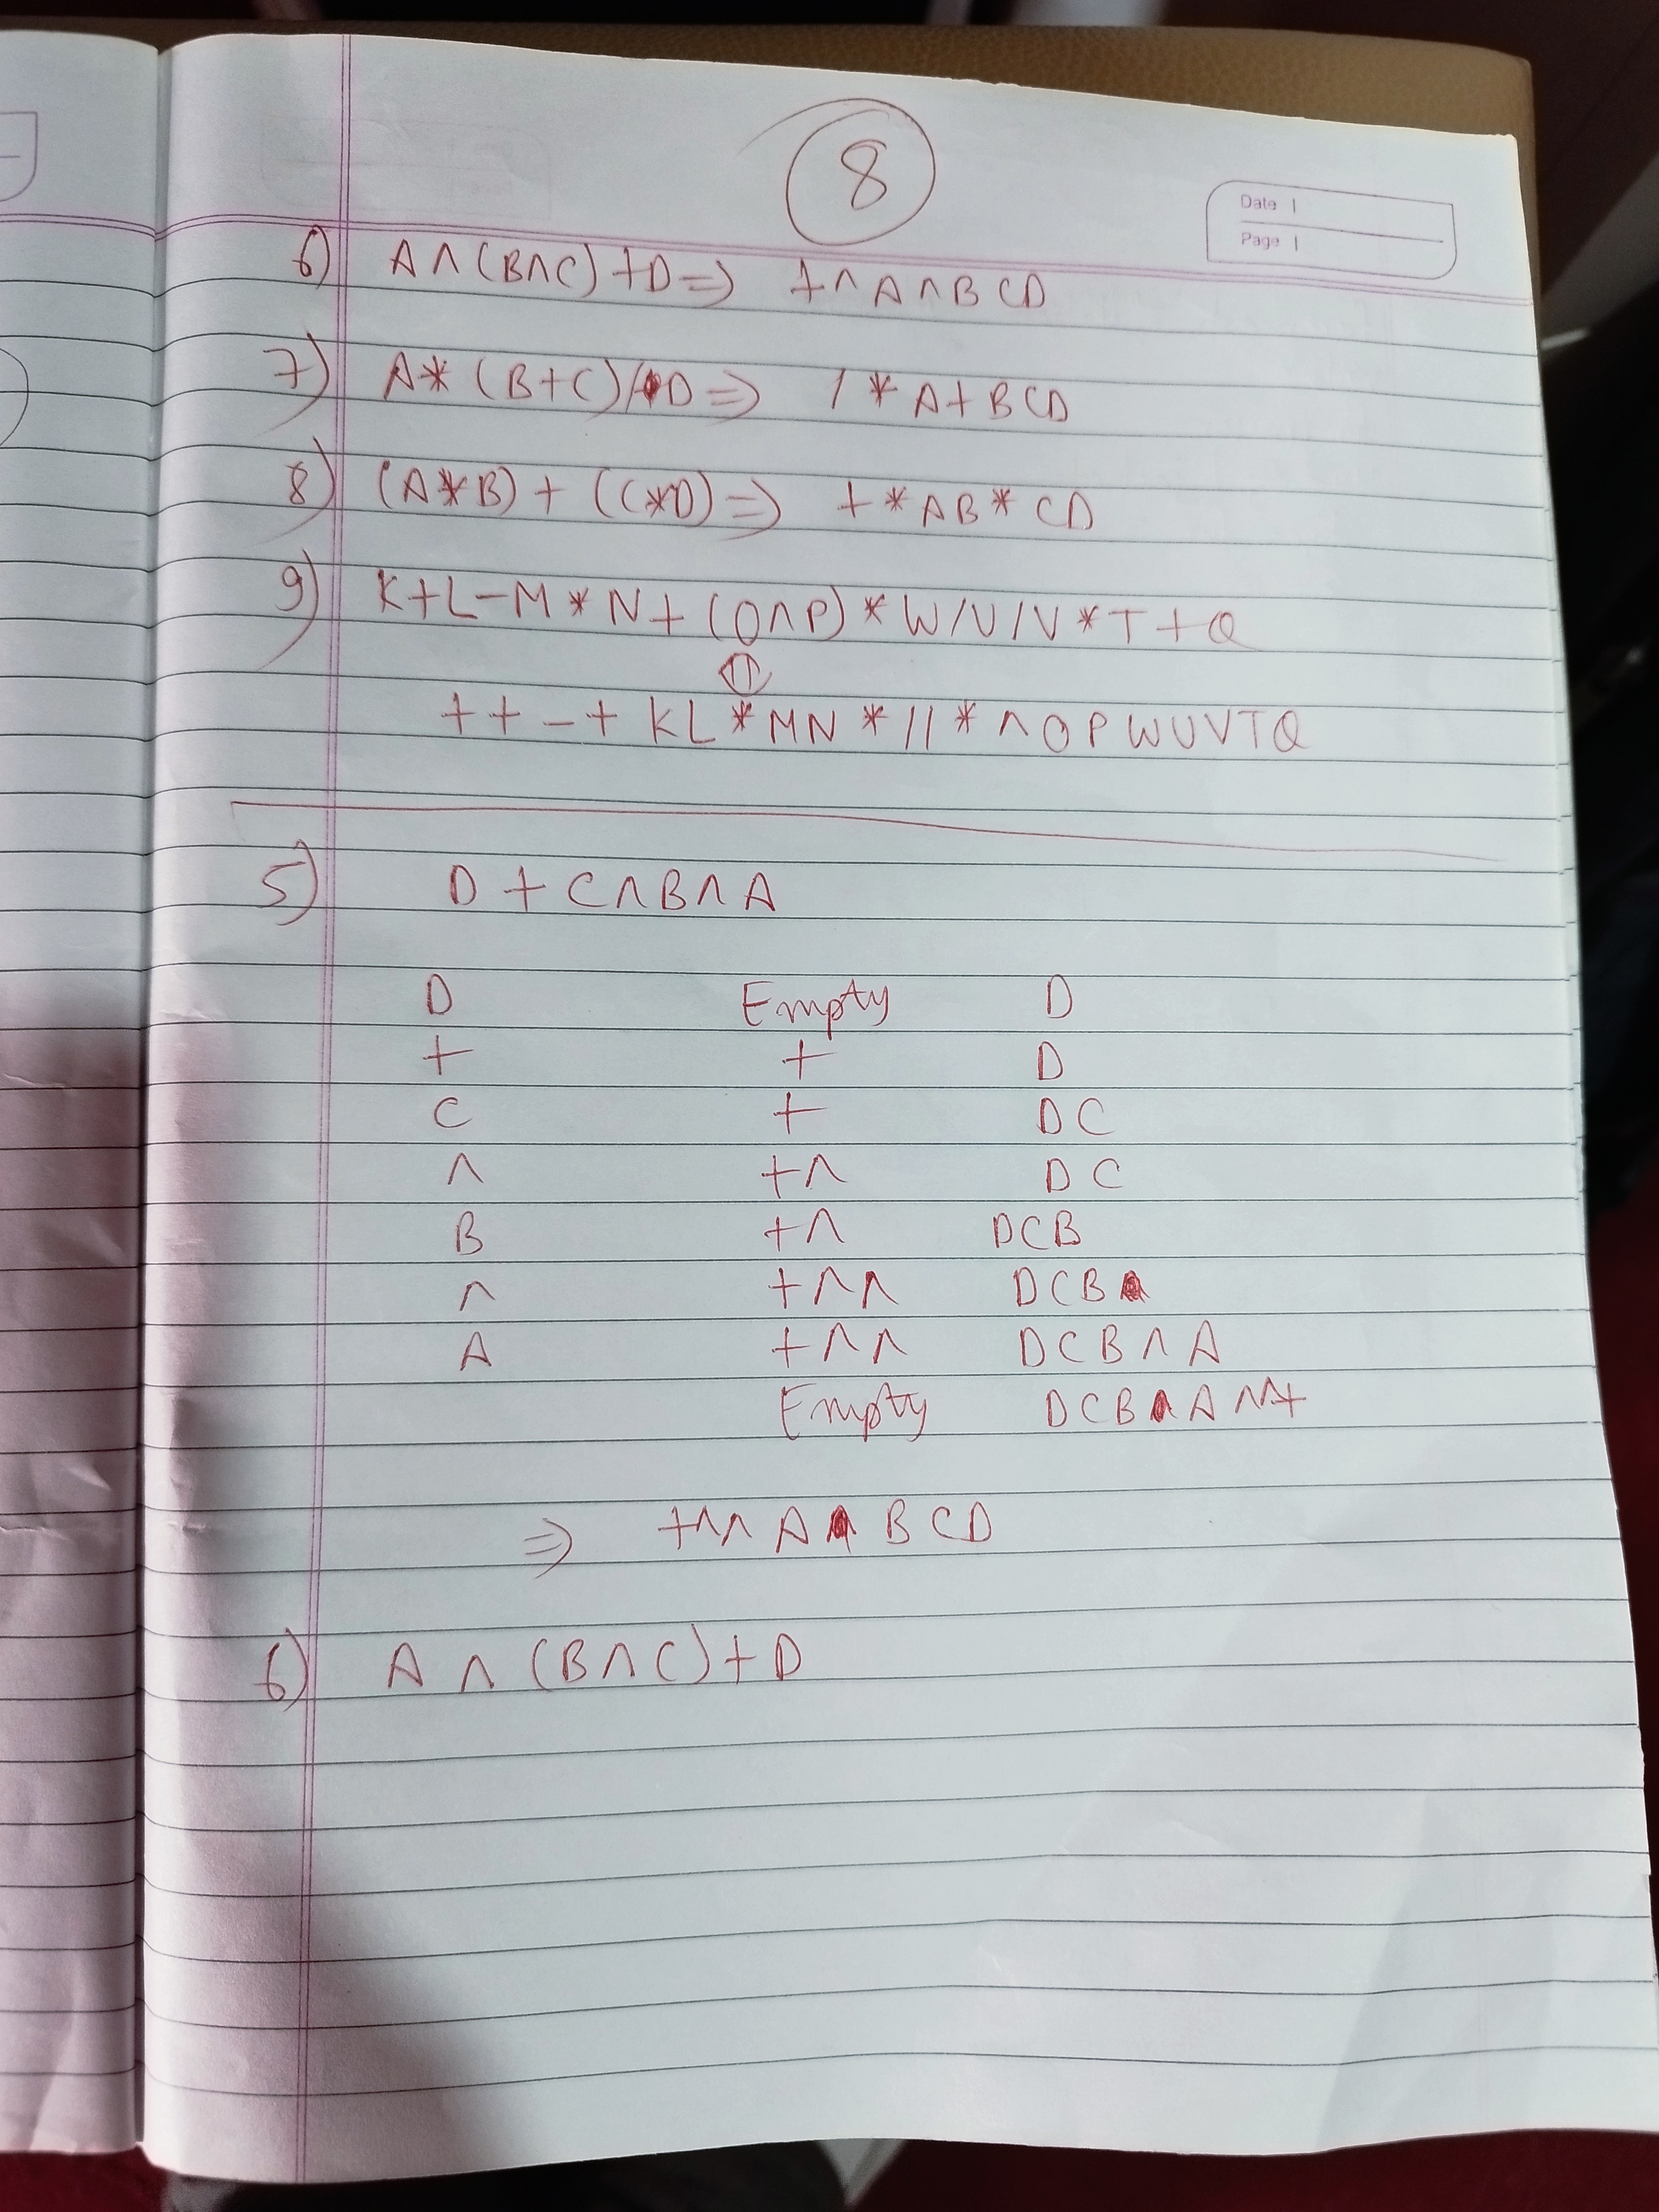 8
Date
Page
6) A ∧ (B∧C) + D ⇒ + ∧ A ∧ B C D
7) A * (B+C) / D ⇒ / * A + B C D
8) (A*B) + (C*D) ⇒ + * A B * C D
9) K + L - M * N + (O∧P) * W / U / V * T + Q
⇕
+ + - + K L * M N * / / * ∧ O P W U V T Q
5) D + C ∧ B ∧ A
D Empty D
+ + D
C + D C
∧ + ∧ D C
B + ∧ D C B
∧ + ∧ ∧ D C B
A + ∧ ∧ D C B ∧ A
Empty D C B A ∧ ∧ +
⇒ + ∧ ∧ A B C D
6) A ∧ (B ∧ C) + D